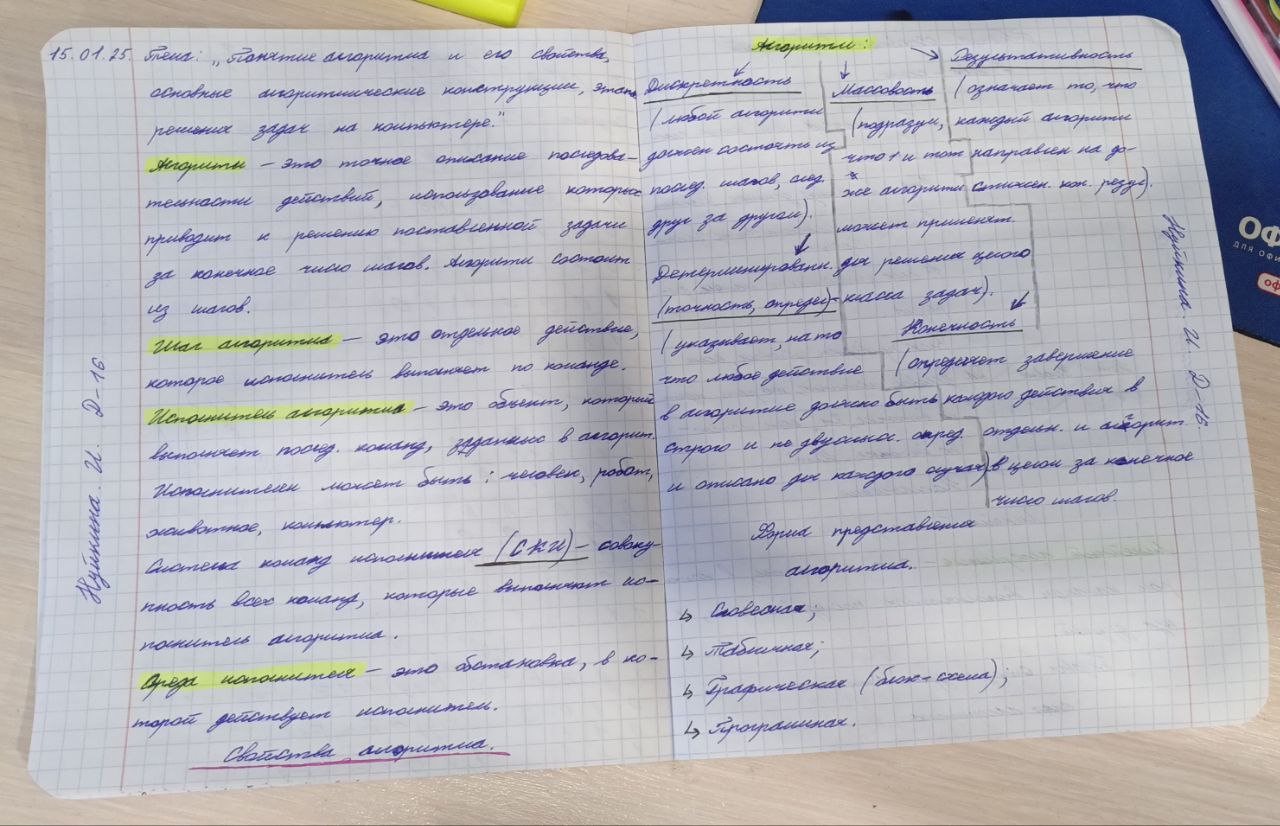 15.01.25. Тема: „Понятие алгоритма и его свойства,
основные алгоритмические конструкции, этапы
решения задач на компьютере."
Алгоритм – это точное описание последова-
тельности действий, использование которых
приводит к решению поставленной задачи
за конечное число шагов. Алгоритм состоит
из шагов.
Шаг алгоритма – это отдельное действие,
которое исполнитель выполняет по команде.
Исполнитель алгоритма – это объект, который
выполняет послед. команд, заданных в алгорит.
Исполнителем может быть: человек, робот,
животное, компьютер.
Система команд исполнителя (СКИ) – совоку-
пность всех команд, которые выполняет ис-
полнитель алгоритма.
Среда исполнителя – это обстановка, в ко-
торой действует исполнитель.
Свойства алгоритма.
Нуйкина. И. Д-16
Алгоритм:
Дискретность
(любой алгоритм
должен состоять из
послед. шагов, след.
друг за другом).
Массовость
(подразум,
что 1 и тот
же алгоритм
может применят.
для решения целого
класса задач).
Результативность
(означает то, что
каждый алгоритм
направлен на до-
стижен. кон. резул).
Детерминированн.
(точность, определ)-
(указывает, на то
что любое действие
в алгоритме должно быть
строго и не двусмысл. опред.
и описано для каждого случая)
Конечность
(определяет завершение
каждого действия в
отдельн. и алгорит.
в целом за конечное
число шагов.
Форма представления
алгоритма.
↳ Словесная;
↳ Табличная;
↳ Графическая (блок-схема);
↳ Программная.
Нуйкина. И. Д-16
ОФ